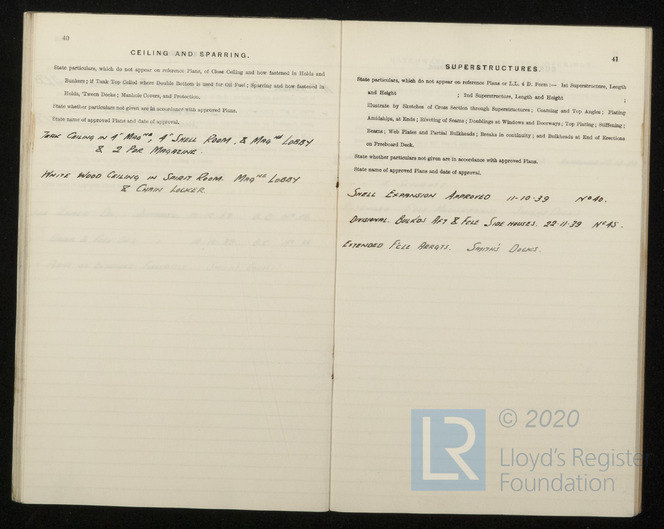 40
CEILING AND SPARRING.
State particulars, which do not appear on reference Plans, of Close Ceiling and how fastened in Holds and
Bunkers; if Tank Top Ceiled where Double Bottom is used for Oil Fuel; Sparring and how fastened in
Holds, 'Tween Decks; Manhole Covers, and Protection.
State whether particulars not given are in accordance with approved Plans.
State name of approved Plans and date of approval.
TEAK CEILING IN 4" MAGNE, 4" SHELL ROOM, & MAGNE LOBBY
& 2 PDR MAGAZINE.
WHITE WOOD CEILING IN SPIRIT ROOM. MAGNE LOBBY
& CHAIN LOCKER
41
SUPERSTRUCTURES.
State particulars, which do not appear on reference Plans or L.L. 4 D. Form :— 1st Superstructure, Length
and Height ; 2nd Superstructure, Length and Height ;
Illustrate by Sketches of Cross Section through Superstructures; Coaming and Top Angles; Plating
Amidships, at Ends; Riveting of Seams; Doublings at Windows and Doorways; Top Plating; Stiffening;
Beams; Web Plates and Partial Bulkheads; Breaks in continuity; and Bulkheads at End of Erections
on Freeboard Deck.
State whether particulars not given are in accordance with approved Plans.
State name of approved Plans and date of approval.
SHELL EXPANSION APPROVED 11-10-39 No 40.
DIVISIONAL. BULKDS AFT & FCLE SIDE HOUSES. 22-11-39 No 45.
EXTENDED FCLE ARRGTS. SMITH'S DOCKS.
LR
© 2020
Lloyd's Register
Foundation